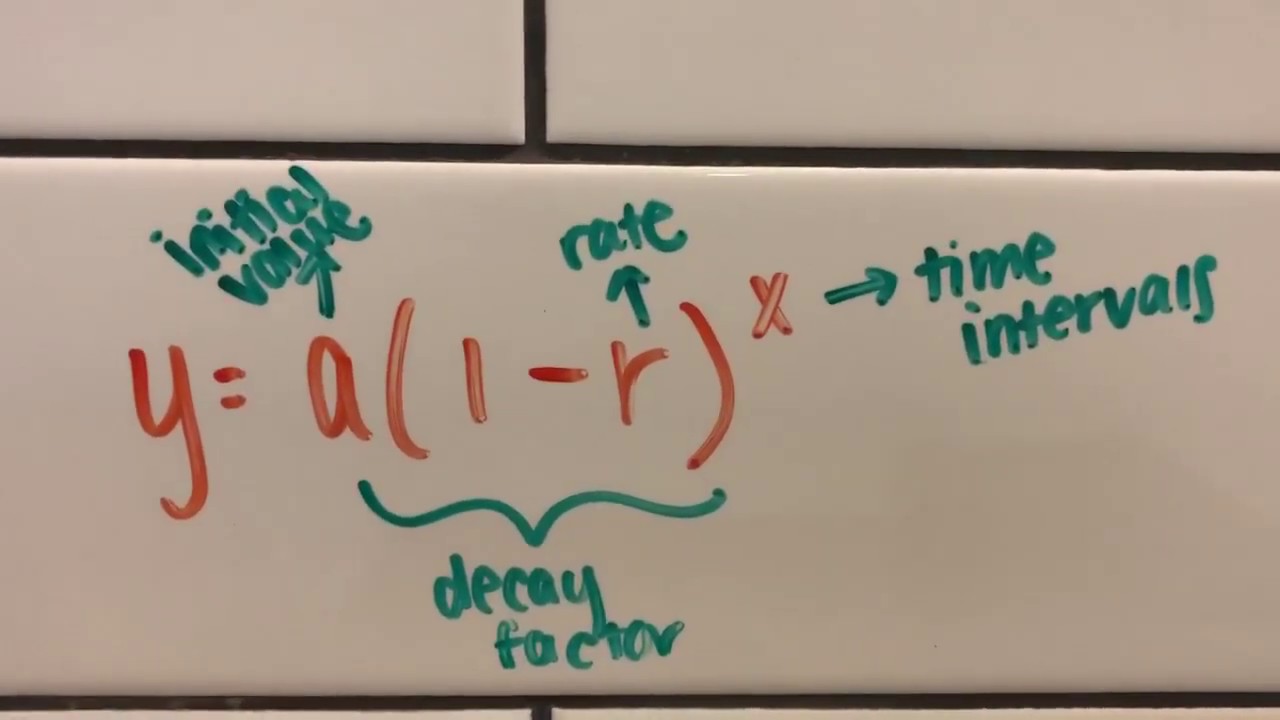 initial
value
rate
y = a(1 - r)^x → time
intervals
decay
factor